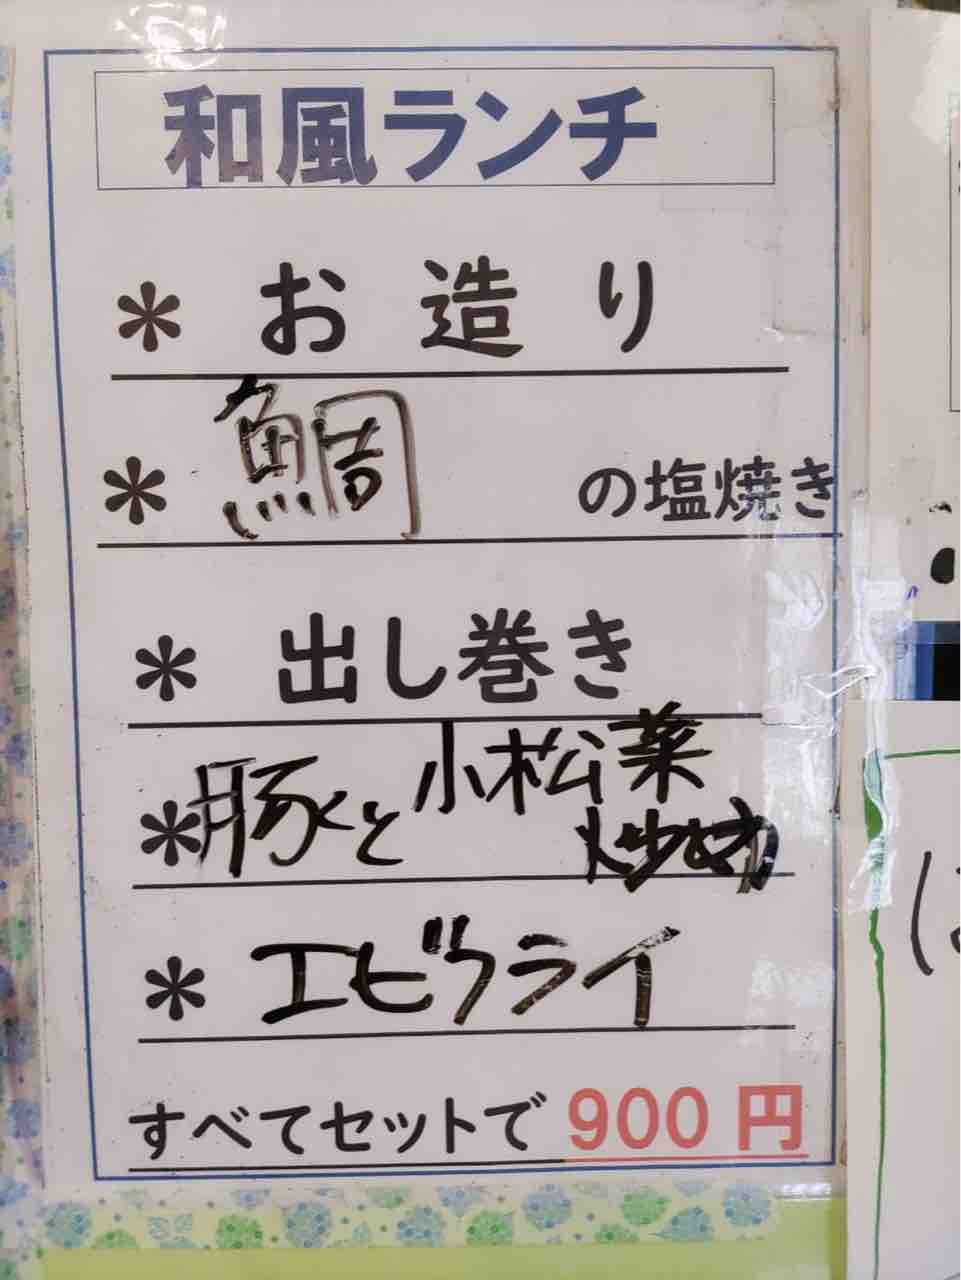 和風ランチ
* お造り
* 鯛 の塩焼き
* 出し巻き
* 豚と小松菜
炒め
* エビフライ
すべてセットで 900 円